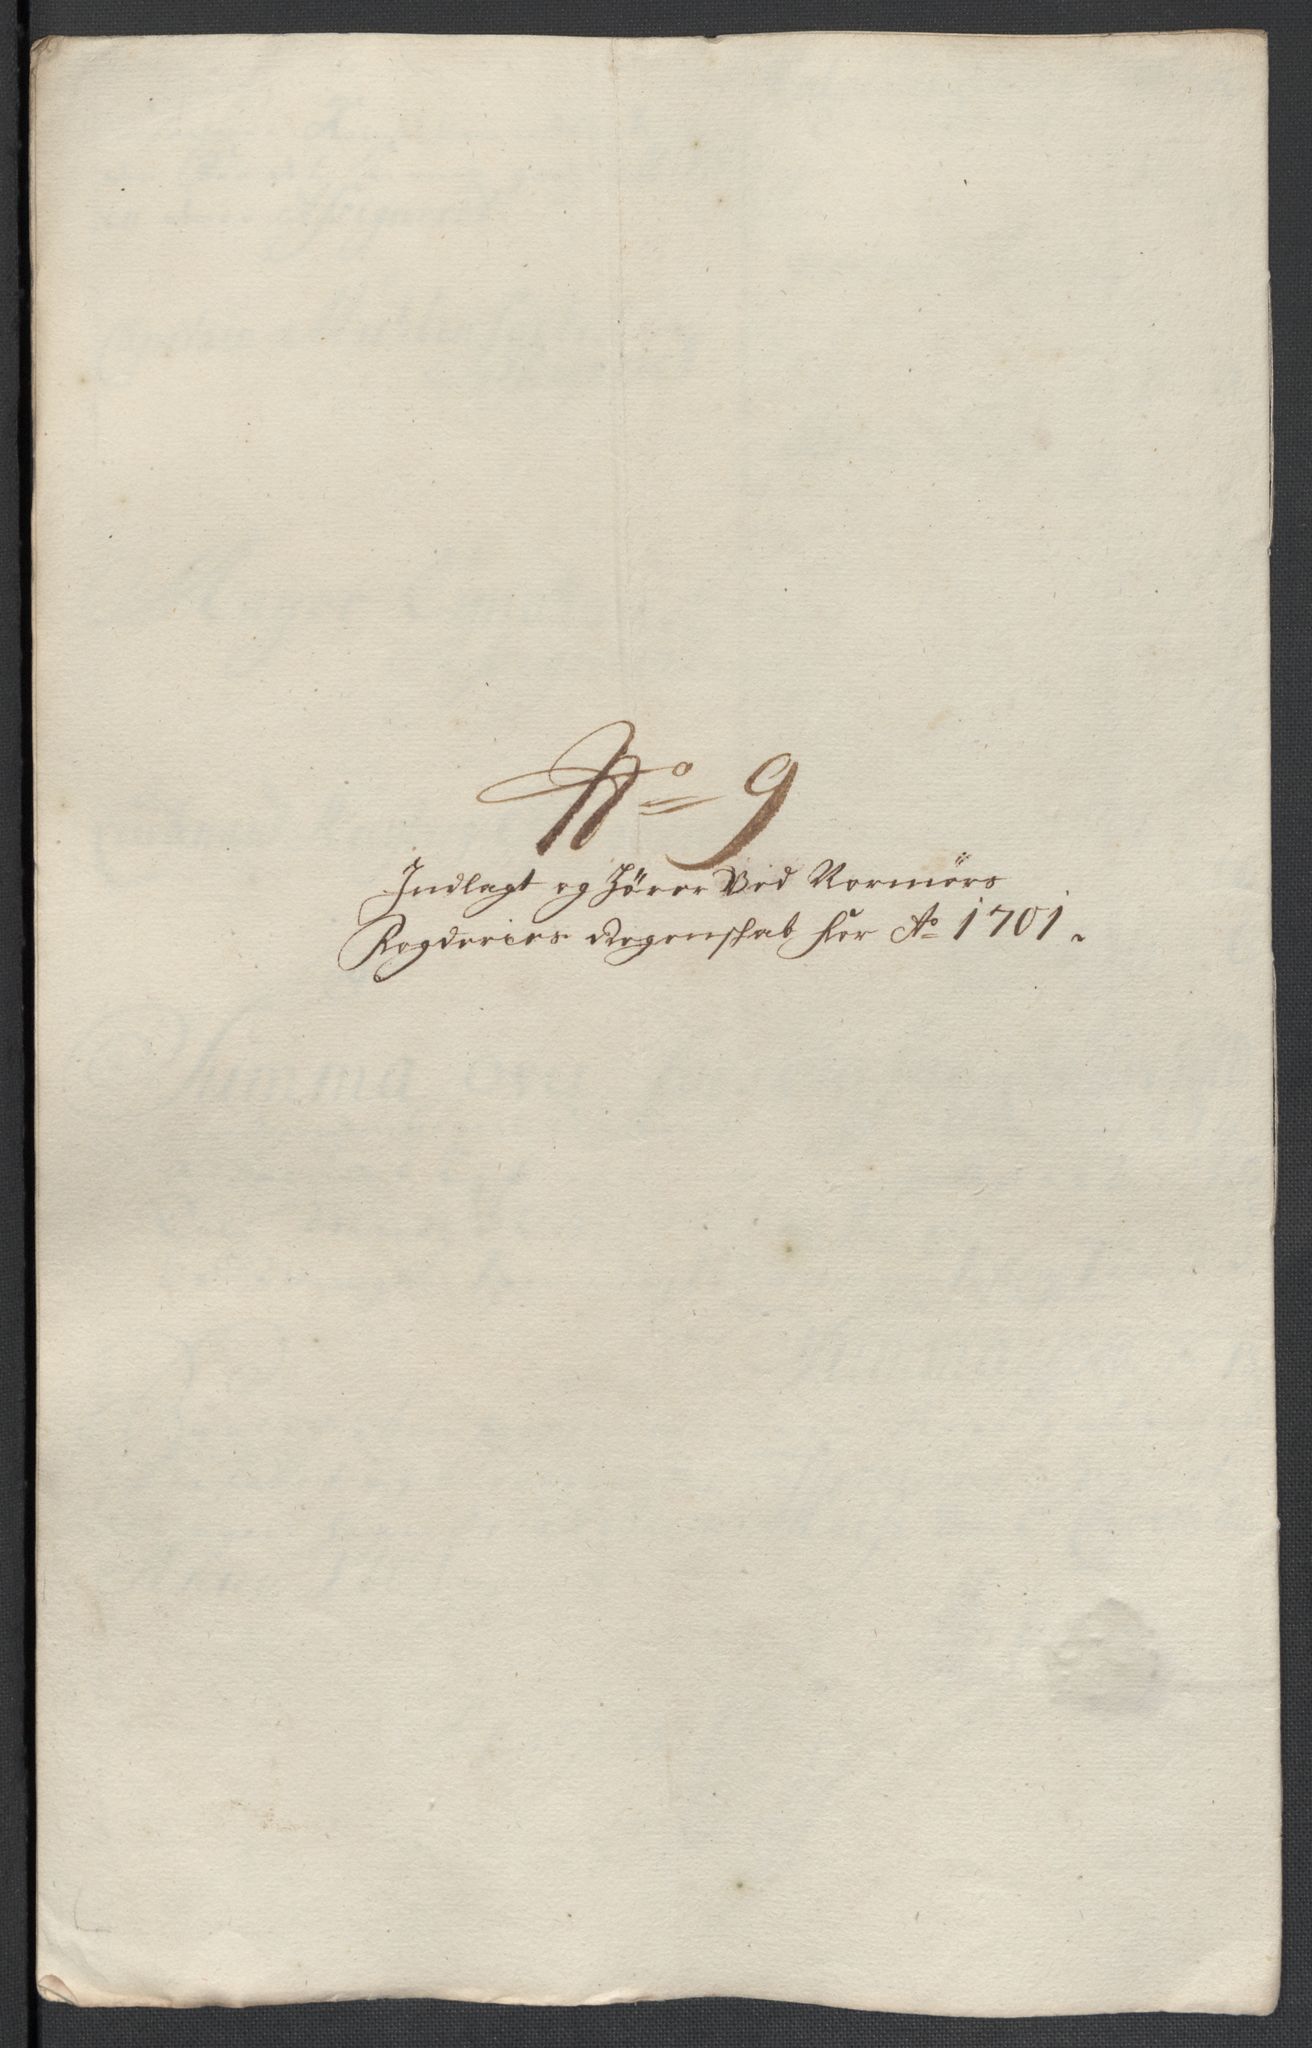 No 9
Indlagt og Hörer Ved Normörs
Fogderies Regenskab for Ao 1701.